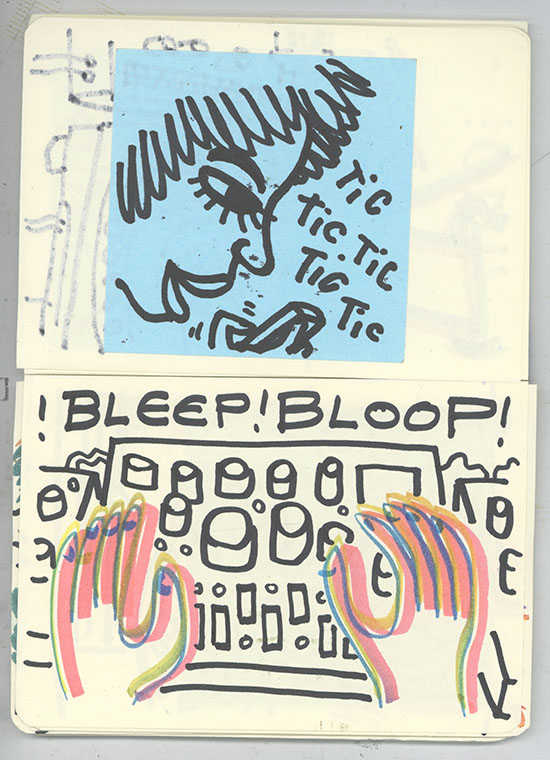 TIC
TIC TIC
TIC
TIC
! BLEEP! BLOOP!